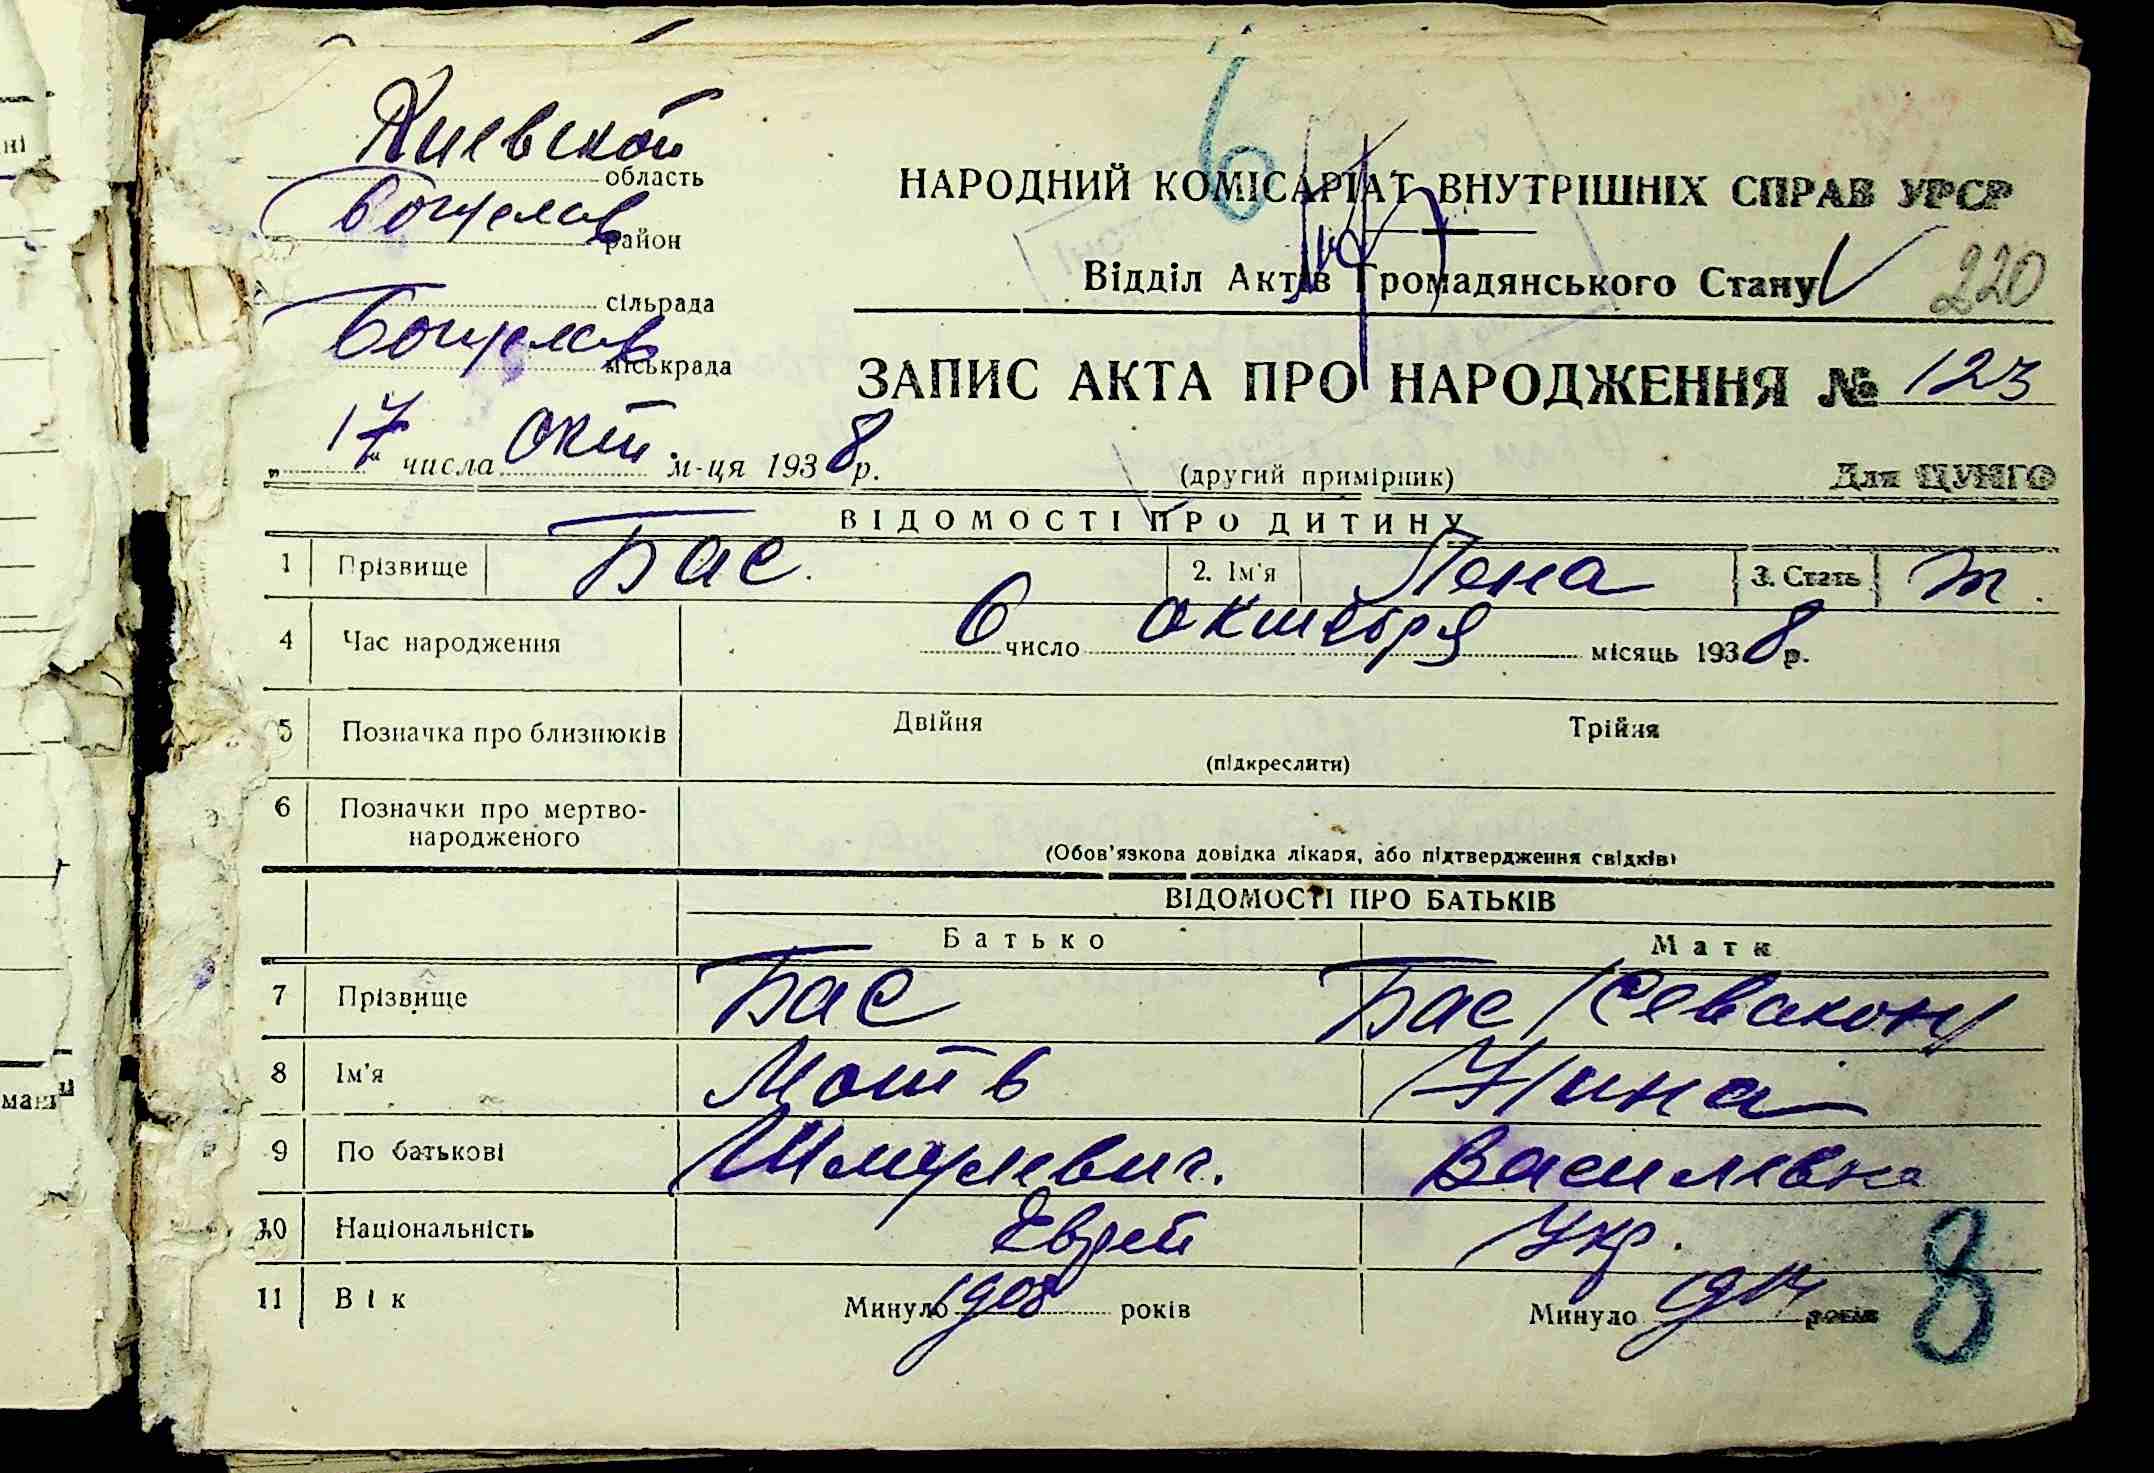 Киевской область
Богуслав район
сільрада
Богуслав міськрада
НАРОДНИЙ КОМІСАРІАТ ВНУТРІШНІХ СПРАВ УРСР
Відділ Актів Громадянського Стану
220
ЗАПИС АКТА ПРО НАРОДЖЕННЯ № 123
„17" числа окт. м-ця 1938р.
(другий примірник)
Для ЦУНГО
ВІДОМОСТІ ПРО ДИТИНУ
1 Прізвище Бас. 2. Ім'я Лена 3. Стать
4 Час народження 6 число октября місяць 1938р.
5 Позначка про близнюків Двійня Трійня
(підкреслити)
6 Позначки про мертво-
народженого
(Обов'язкова довідка лікаря, або підтвердження свідків)
ВІДОМОСТІ ПРО БАТЬКІВ
Батько Мати
7 Прізвище Бас Бас
8 Ім'я Мотв Нина
9 По батькові Шмулевич. Василевна
10 Національність Еврей Укр.
11 Вік Минуло 1908 років Минуло років
6
8